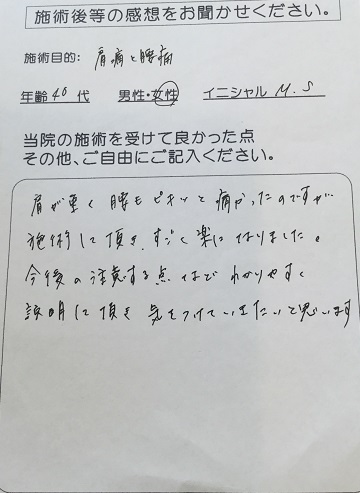 施術後等の感想をお聞かせください。
施術目的: 肩痛と腰痛
年齢 40 代 男性・女性 イニシャル M.S
当院の施術を受けて良かった点
その他、ご自由にご記入ください。
肩が重く腰もピキッと痛かったのですが
施術して頂き、すごく楽になりました。
今後の注意する点などわかりやすく
説明して頂き 気をつけていきたいと思います